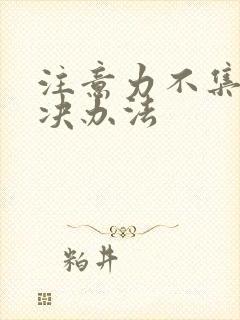 注意力不集
决办法
粕井